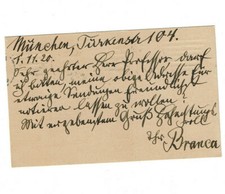 München, Türkenstr 104.
1.11.20.
Sehr geehrter Herr Professor darf
ich bitten meine obige Adresse für
etwaige Sendungen freundlichst
notieren lassen zu wollen!
Mit ergebenstem Gruß hochachtungsvoll
Ihr Branca